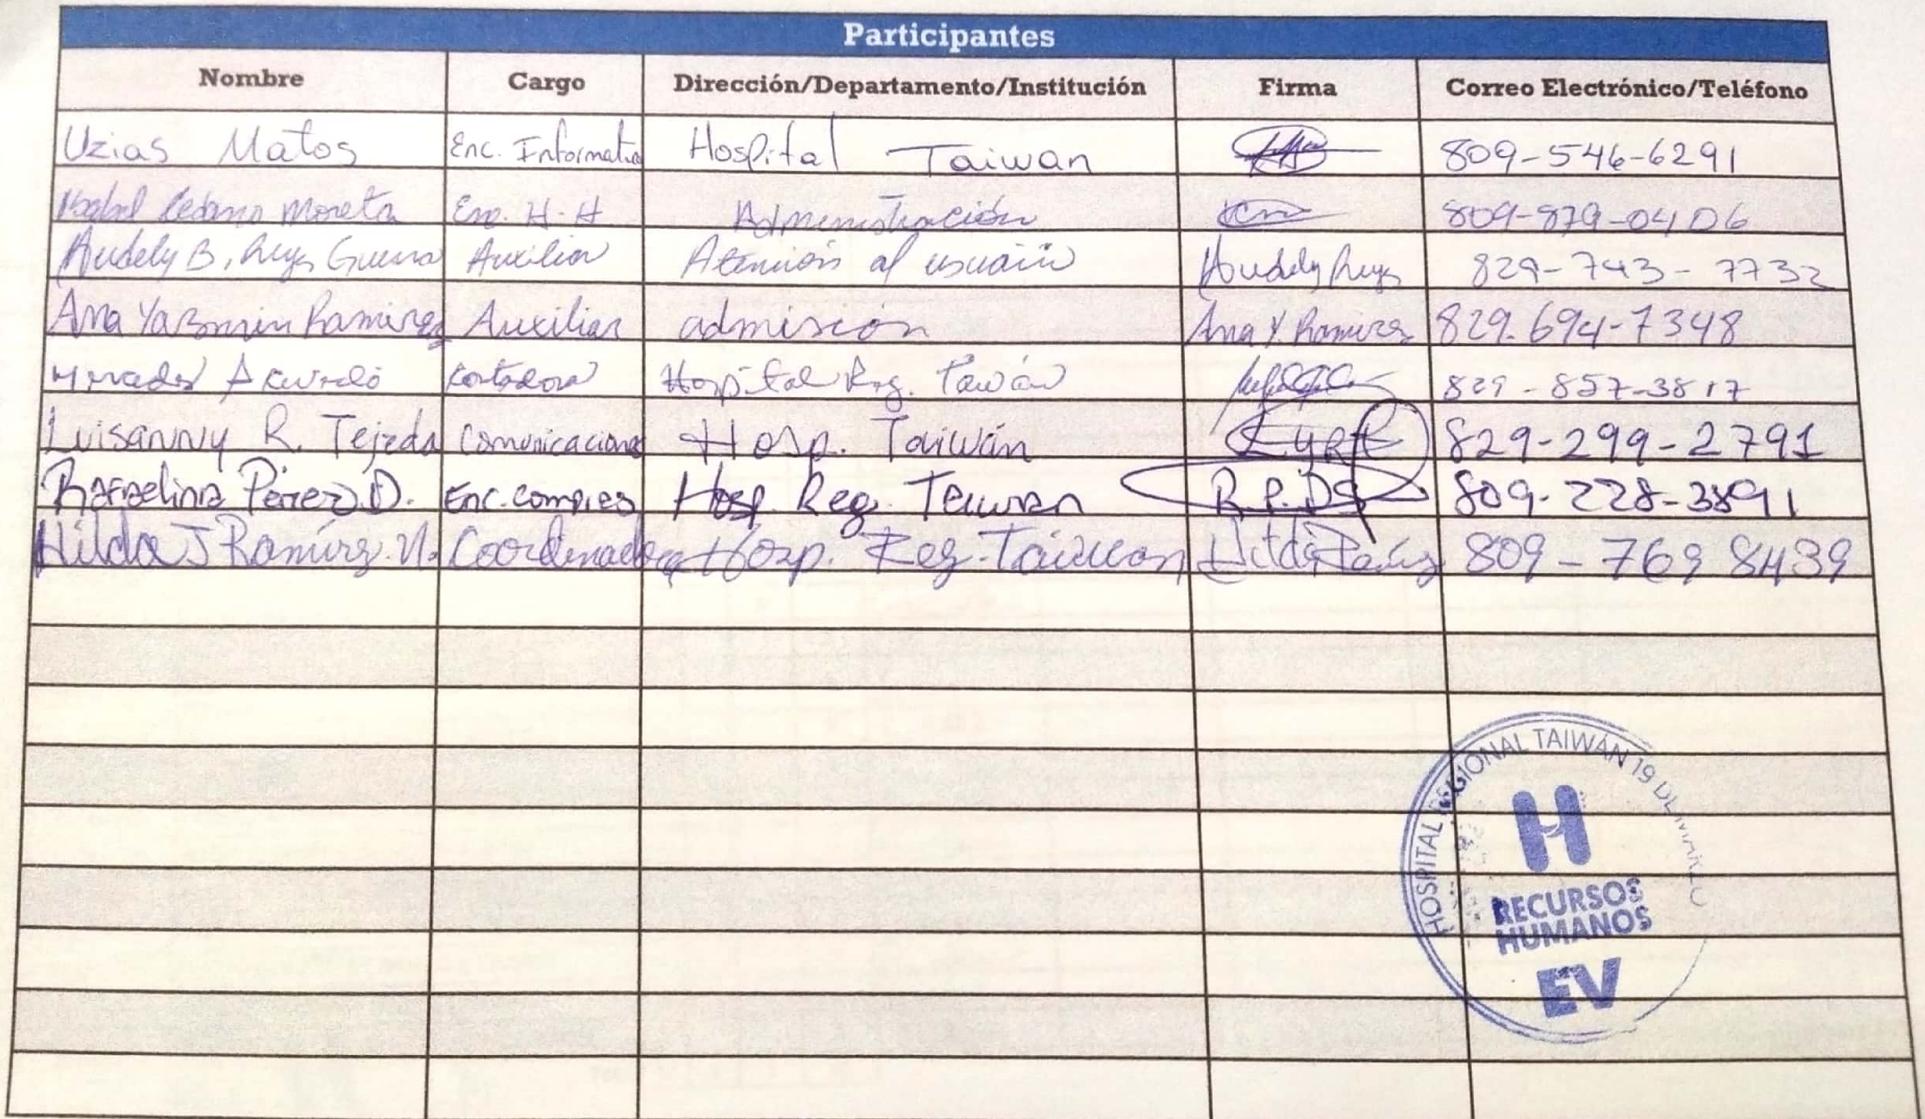 Participantes
Nombre Cargo Dirección/Departamento/Institución Firma Correo Electrónico/Teléfono
Uzias Matos Enc. Informatica Hospital Taiwan 809-546-6291
Moreta Enc. H.H Administración 809-879-0406
Audely B. Reyes Guerra Auxiliar Atención al usuario Audely Reyes 829-743-7732
Ana Yazmin Ramirez Auxiliar admisión Ana Y. Ramirez 829.694-7348
Hospital Reg. Taiwán 829-857-3817
Luisanny R. Tejeda Comunicaciones Hosp. Taiwán 829-299-2791
Rafaelina Pérez D. Enc. compras Hosp Reg. Taiwan R.P.D 809-228-3891
Hilda J Ramírez N. Coordinadora Hosp. Reg. Taiwan 809-769 8439
HOSPITAL REGIONAL TAIWÁN 19 DE MARZO
H
RECURSOS
HUMANOS
EV